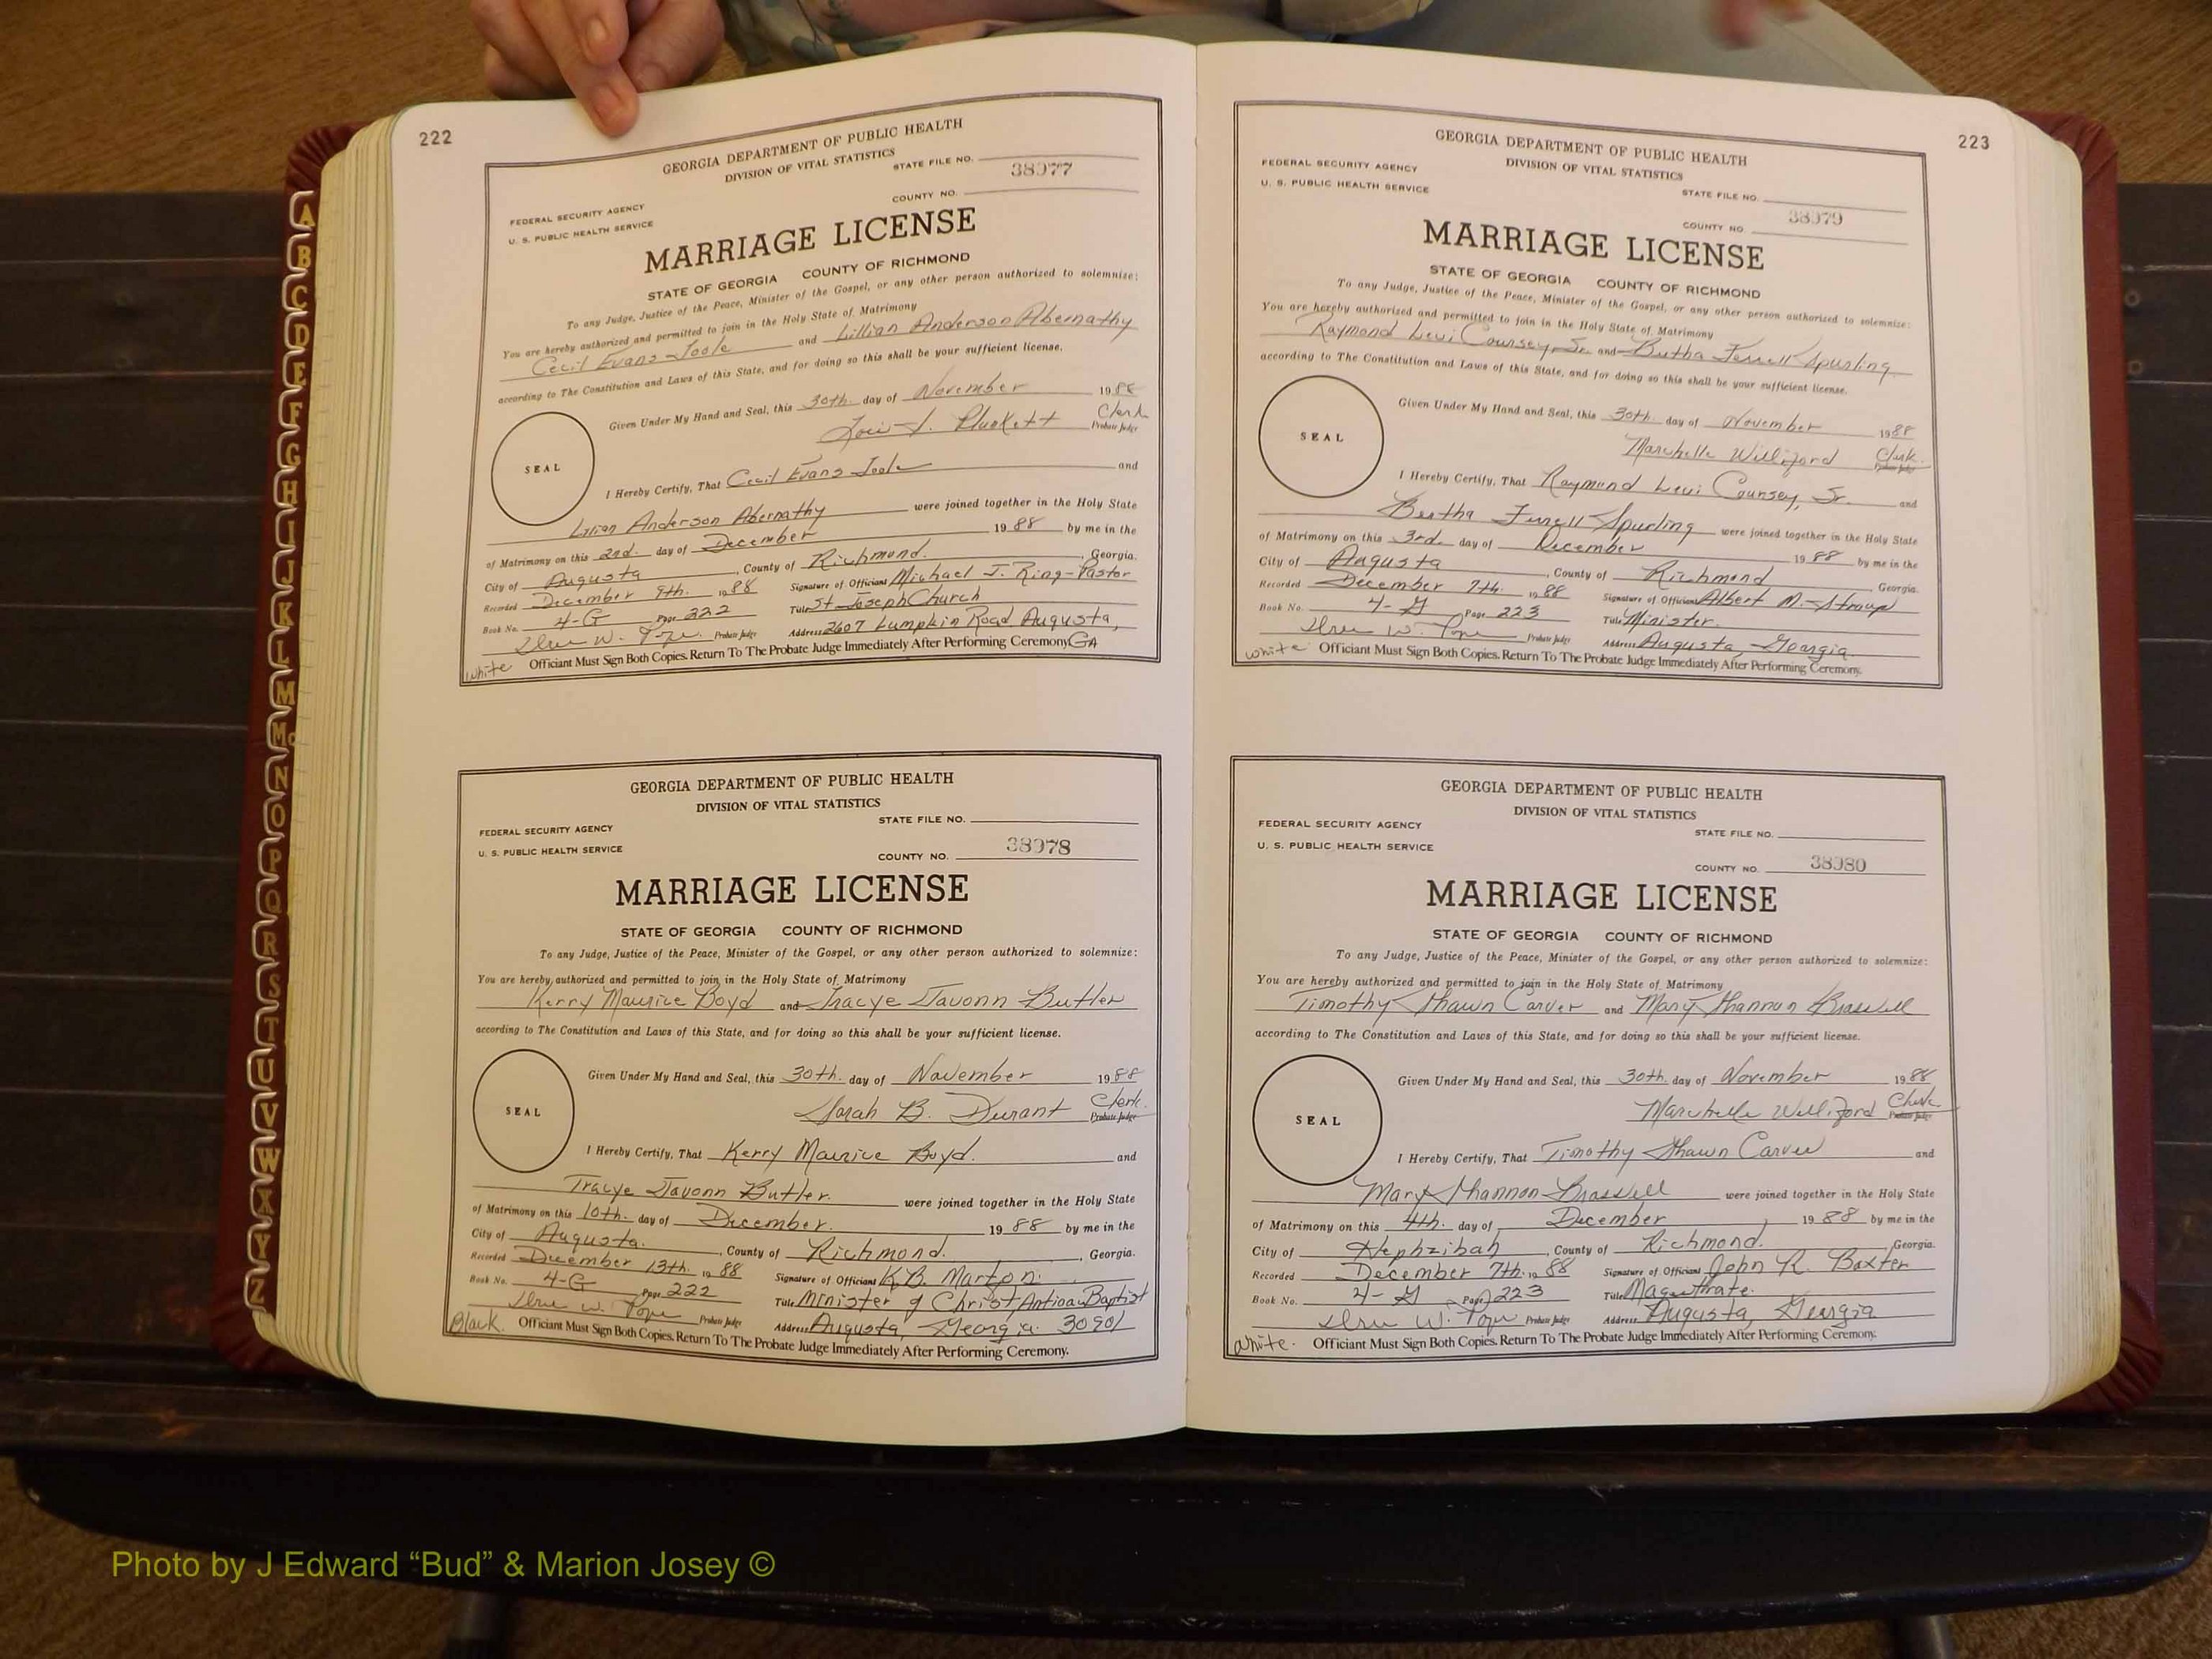 222
GEORGIA DEPARTMENT OF PUBLIC HEALTH
DIVISION OF VITAL STATISTICS
STATE FILE NO. 38977
COUNTY NO.
FEDERAL SECURITY AGENCY
U. S. PUBLIC HEALTH SERVICE
MARRIAGE LICENSE
STATE OF GEORGIA COUNTY OF RICHMOND
To any Judge, Justice of the Peace, Minister of the Gospel, or any other person authorized to solemnize:
You are hereby authorized and permitted to join in the Holy State of Matrimony
Cecil Evans Toole and Lillian Anderson Abernathy
according to The Constitution and Laws of this State, and for doing so this shall be your sufficient license.
Given Under My Hand and Seal, this 30th. day of November 1988
Clerk
Probate Judge
SEAL
I Hereby Certify, That Cecil Evans Toole and
Lilian Anderson Abernathy were joined together in the Holy State
of Matrimony on this 2nd. day of December 1988 by me in the
City of Augusta, County of Richmond. , Georgia.
Recorded December 9th. 1988 Signature of Officiant Michael J. Ring-Pastor
Book No. 4-G Page 222 Title St Joseph Church
Probate Judge Address 2607 Lumpkin Road Augusta,
GA
white Officiant Must Sign Both Copies. Return To The Probate Judge Immediately After Performing Ceremony.
GEORGIA DEPARTMENT OF PUBLIC HEALTH
DIVISION OF VITAL STATISTICS
STATE FILE NO.
FEDERAL SECURITY AGENCY
U. S. PUBLIC HEALTH SERVICE
COUNTY NO. 38978
MARRIAGE LICENSE
STATE OF GEORGIA COUNTY OF RICHMOND
To any Judge, Justice of the Peace, Minister of the Gospel, or any other person authorized to solemnize:
You are hereby authorized and permitted to join in the Holy State of Matrimony
Kerry Maurice Boyd and Tracye Tavonn Butler
according to The Constitution and Laws of this State, and for doing so this shall be your sufficient license.
Given Under My Hand and Seal, this 30th. day of November 1988
Sarah B. Durant Clerk.
Probate Judge
SEAL
I Hereby Certify, That Kerry Maurice Boyd. and
Tracye Tavonn Butler. were joined together in the Holy State
of Matrimony on this 10th. day of December. 1988 by me in the
City of Augusta. , County of Richmond. , Georgia.
Recorded December 13th. 1988 Signature of Officiant K.B. Martin.
Book No. 4-G Page 222 Title Minister of Christ Baptist
Probate Judge Address Augusta, Georgia. 30901
Black. Officiant Must Sign Both Copies. Return To The Probate Judge Immediately After Performing Ceremony.
223
GEORGIA DEPARTMENT OF PUBLIC HEALTH
DIVISION OF VITAL STATISTICS
FEDERAL SECURITY AGENCY
U. S. PUBLIC HEALTH SERVICE
STATE FILE NO.
COUNTY NO. 38979
MARRIAGE LICENSE
STATE OF GEORGIA COUNTY OF RICHMOND
To any Judge, Justice of the Peace, Minister of the Gospel, or any other person authorized to solemnize:
You are hereby authorized and permitted to join in the Holy State of Matrimony
Raymond Levi Coursey, Sr. and Spurling
according to The Constitution and Laws of this State, and for doing so this shall be your sufficient license.
Given Under My Hand and Seal, this 30th. day of November 1988
Marchelle Williford Clerk.
Probate Judge
SEAL
I Hereby Certify, That Raymond Levi Coursey, Sr. and
Bertha Spurling were joined together in the Holy State
of Matrimony on this 3rd. day of December 1988 by me in the
City of Augusta, County of Richmond , Georgia.
Recorded December 7th. 1988 Signature of Officiant Albert M. Stroup
Book No. 4-G Page 223 Title Minister.
Probate Judge Address Augusta, Georgia
white Officiant Must Sign Both Copies. Return To The Probate Judge Immediately After Performing Ceremony.
GEORGIA DEPARTMENT OF PUBLIC HEALTH
DIVISION OF VITAL STATISTICS
FEDERAL SECURITY AGENCY
U. S. PUBLIC HEALTH SERVICE
STATE FILE NO.
COUNTY NO. 38980
MARRIAGE LICENSE
STATE OF GEORGIA COUNTY OF RICHMOND
To any Judge, Justice of the Peace, Minister of the Gospel, or any other person authorized to solemnize:
You are hereby authorized and permitted to join in the Holy State of Matrimony
Timothy Shawn Carver and Mary Shannon Braswell
according to The Constitution and Laws of this State, and for doing so this shall be your sufficient license.
Given Under My Hand and Seal, this 30th. day of November 1988
Marchelle Williford Clerk
Probate Judge
SEAL
I Hereby Certify, That Timothy Shawn Carver and
Mary Shannon Braswell were joined together in the Holy State
of Matrimony on this 4th. day of December 1988 by me in the
City of Hephzibah, County of Richmond. , Georgia.
Recorded December 7th. 1988 Signature of Officiant John R. Baxter
Book No. 4-G Page 223 Title Magistrate.
Probate Judge Address Augusta, Georgia
White. Officiant Must Sign Both Copies. Return To The Probate Judge Immediately After Performing Ceremony.
A
B
C
D
E
F
G
H
I
J
K
L
M
Mc
N
O
P
Q
R
S
T
U
V
W
X
Y
Z
Photo by J Edward “Bud” & Marion Josey ©